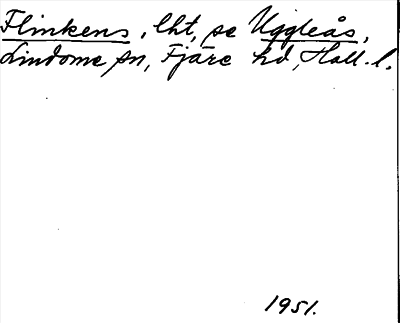 Flinkens, lht, se Uggleås,
Lindome sn, Fjäre hd, Hall. l.
1951.